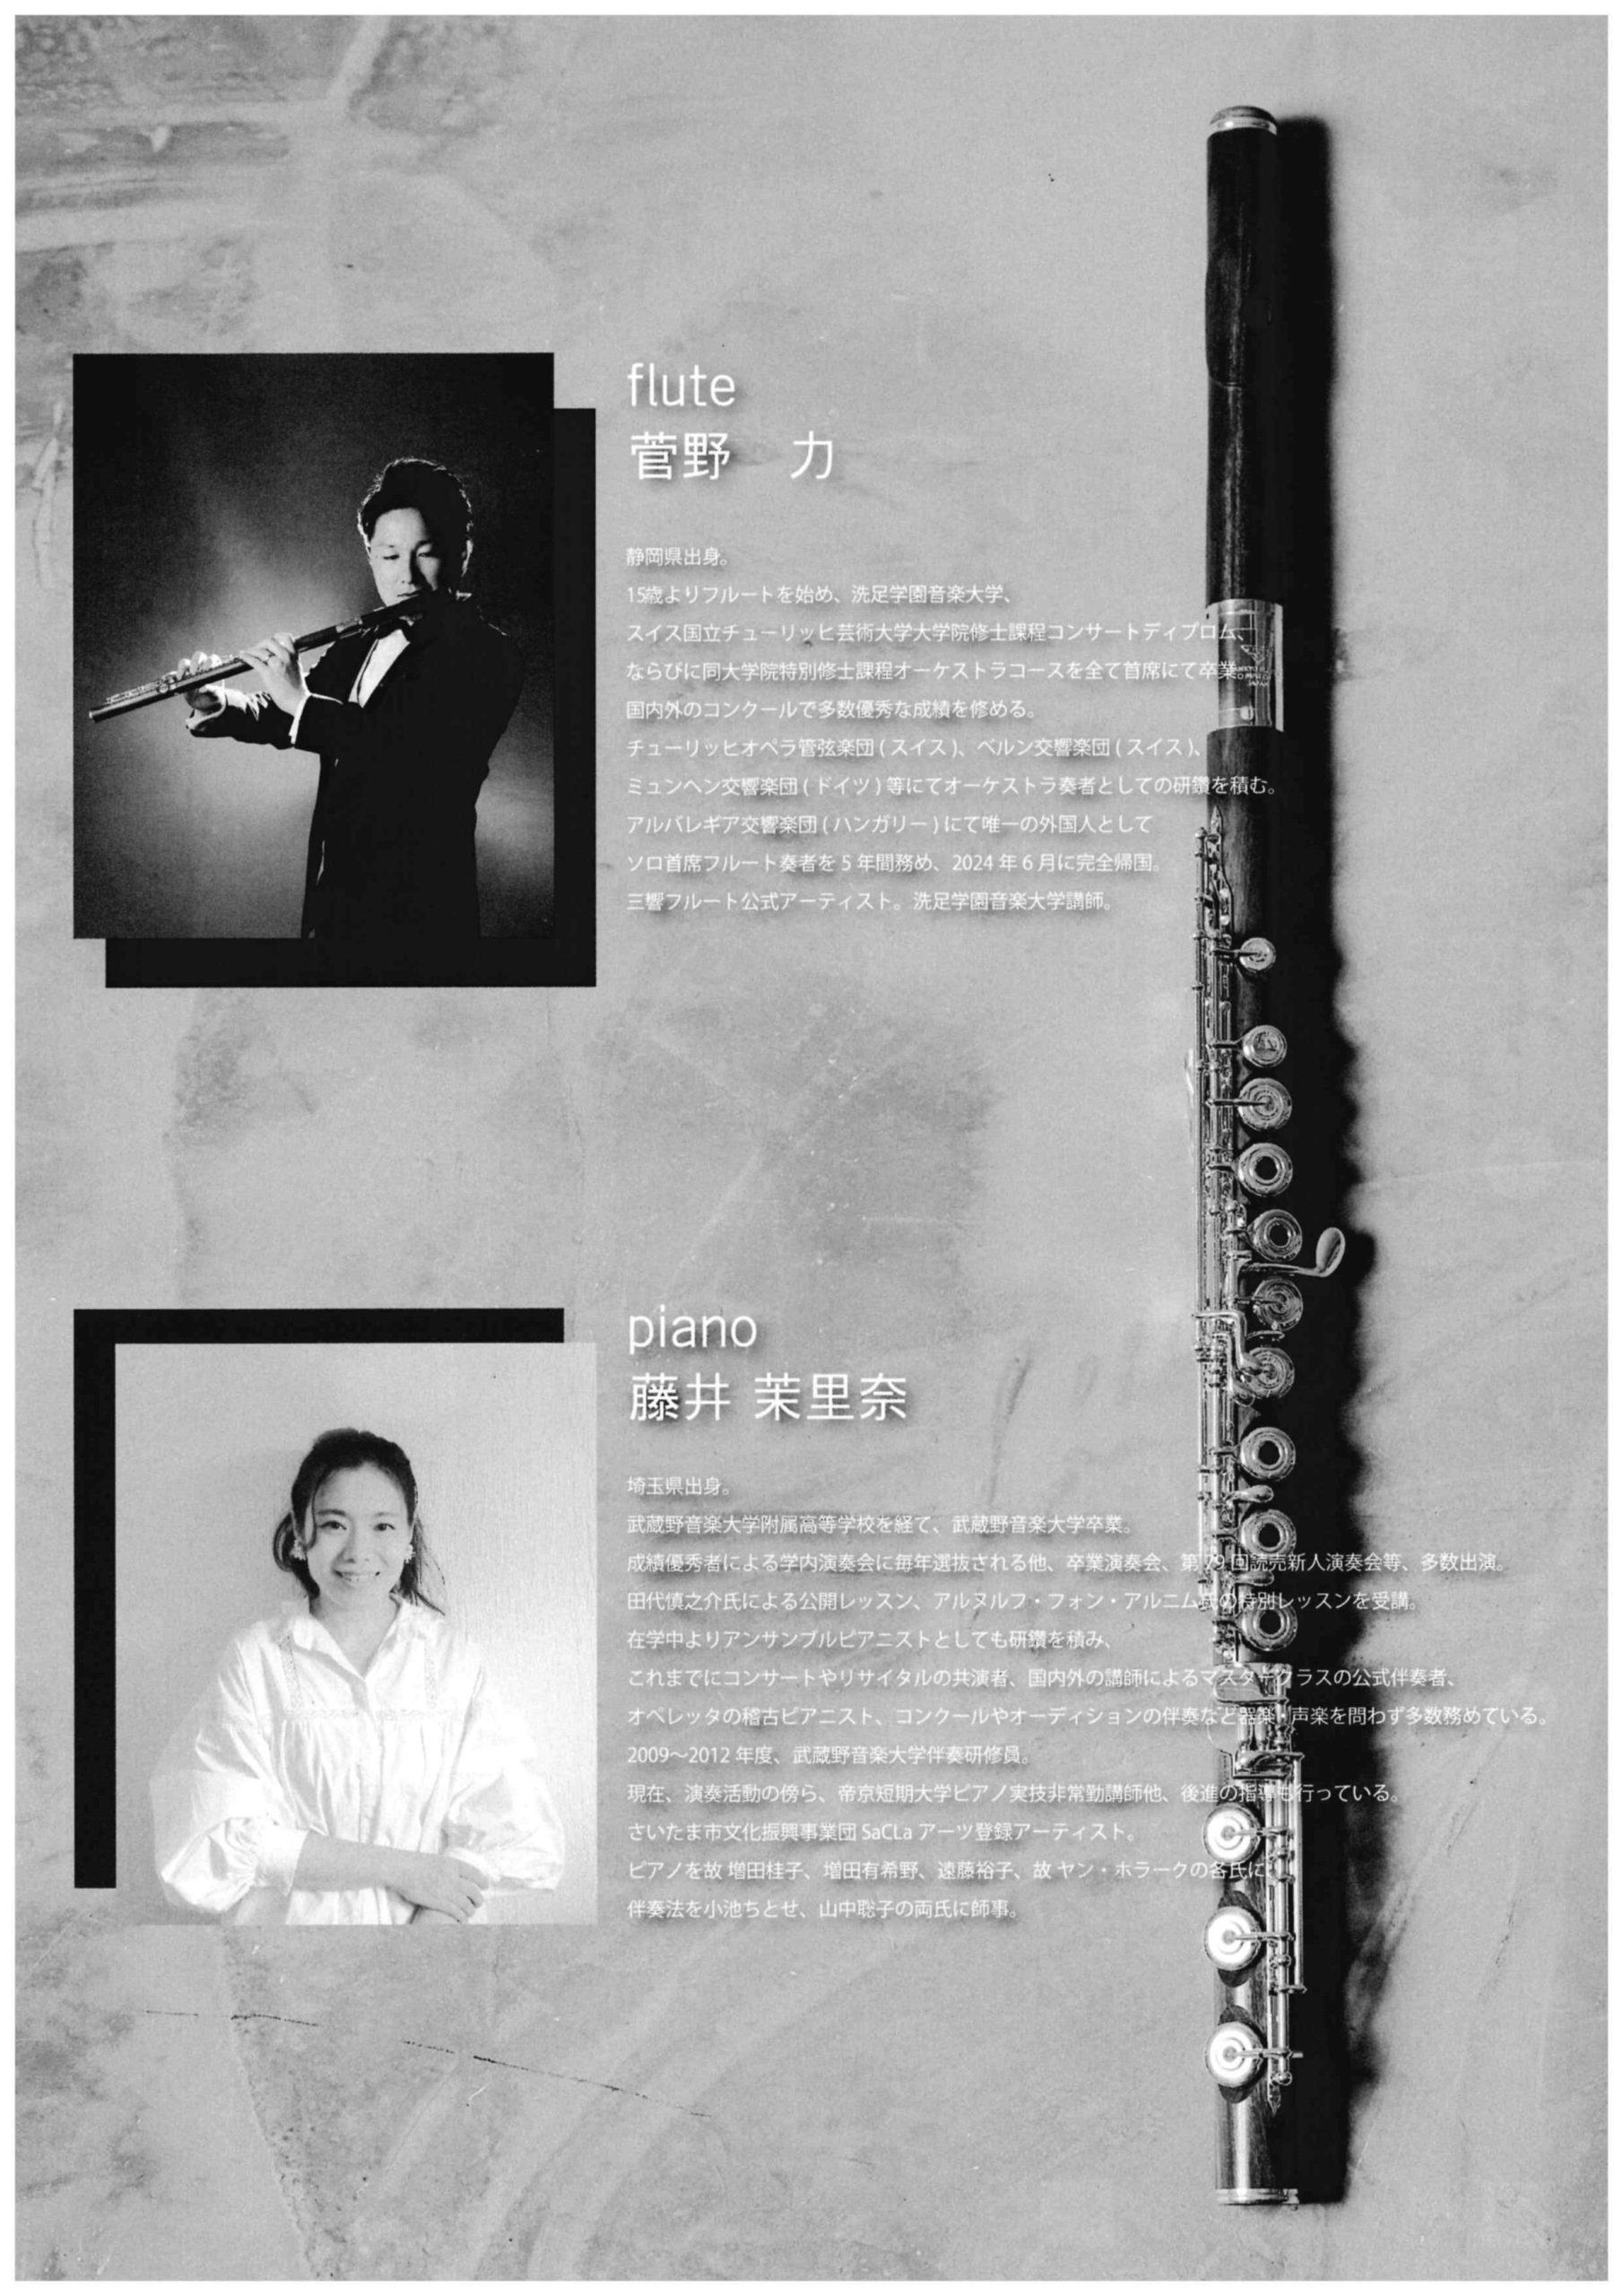 flute
菅野　力
静岡県出身。
15歳よりフルートを始め、洗足学園音楽大学、
スイス国立チューリッヒ芸術大学大学院修士課程コンサートディプロム、
ならびに同大学院特別修士課程オーケストラコースを全て首席にて卒業。
国内外のコンクールで多数優秀な成績を修める。
チューリッヒオペラ管弦楽団 ( スイス )、ベルン交響楽団 ( スイス )、
ミュンヘン交響楽団 ( ドイツ ) 等にてオーケストラ奏者としての研鑽を積む。
アルバレギア交響楽団 ( ハンガリー ) にて唯一の外国人として
ソロ首席フルート奏者を 5 年間務め、2024 年 6 月に完全帰国。
三響フルート公式アーティスト。洗足学園音楽大学講師。
piano
藤井 茉里奈
埼玉県出身。
武蔵野音楽大学附属高等学校を経て、武蔵野音楽大学卒業。
成績優秀者による学内演奏会に毎年選抜される他、卒業演奏会、第 79 回読売新人演奏会等、多数出演。
田代慎之介氏による公開レッスン、アルヌルフ・フォン・アルニム氏の特別レッスンを受講。
在学中よりアンサンブルピアニストとしても研鑽を積み、
これまでにコンサートやリサイタルの共演者、国内外の講師によるマスタークラスの公式伴奏者、
オペレッタの稽古ピアニスト、コンクールやオーディションの伴奏など器楽・声楽を問わず多数務めている。
2009～2012 年度、武蔵野音楽大学伴奏研修員。
現在、演奏活動の傍ら、帝京短期大学ピアノ実技非常勤講師他、後進の指導も行っている。
さいたま市文化振興事業団 SaCLa アーツ登録アーティスト。
ピアノを故 増田桂子、増田有希野、遠藤裕子、故 ヤン・ホラークの各氏に
伴奏法を小池ちとせ、山中聡子の両氏に師事。